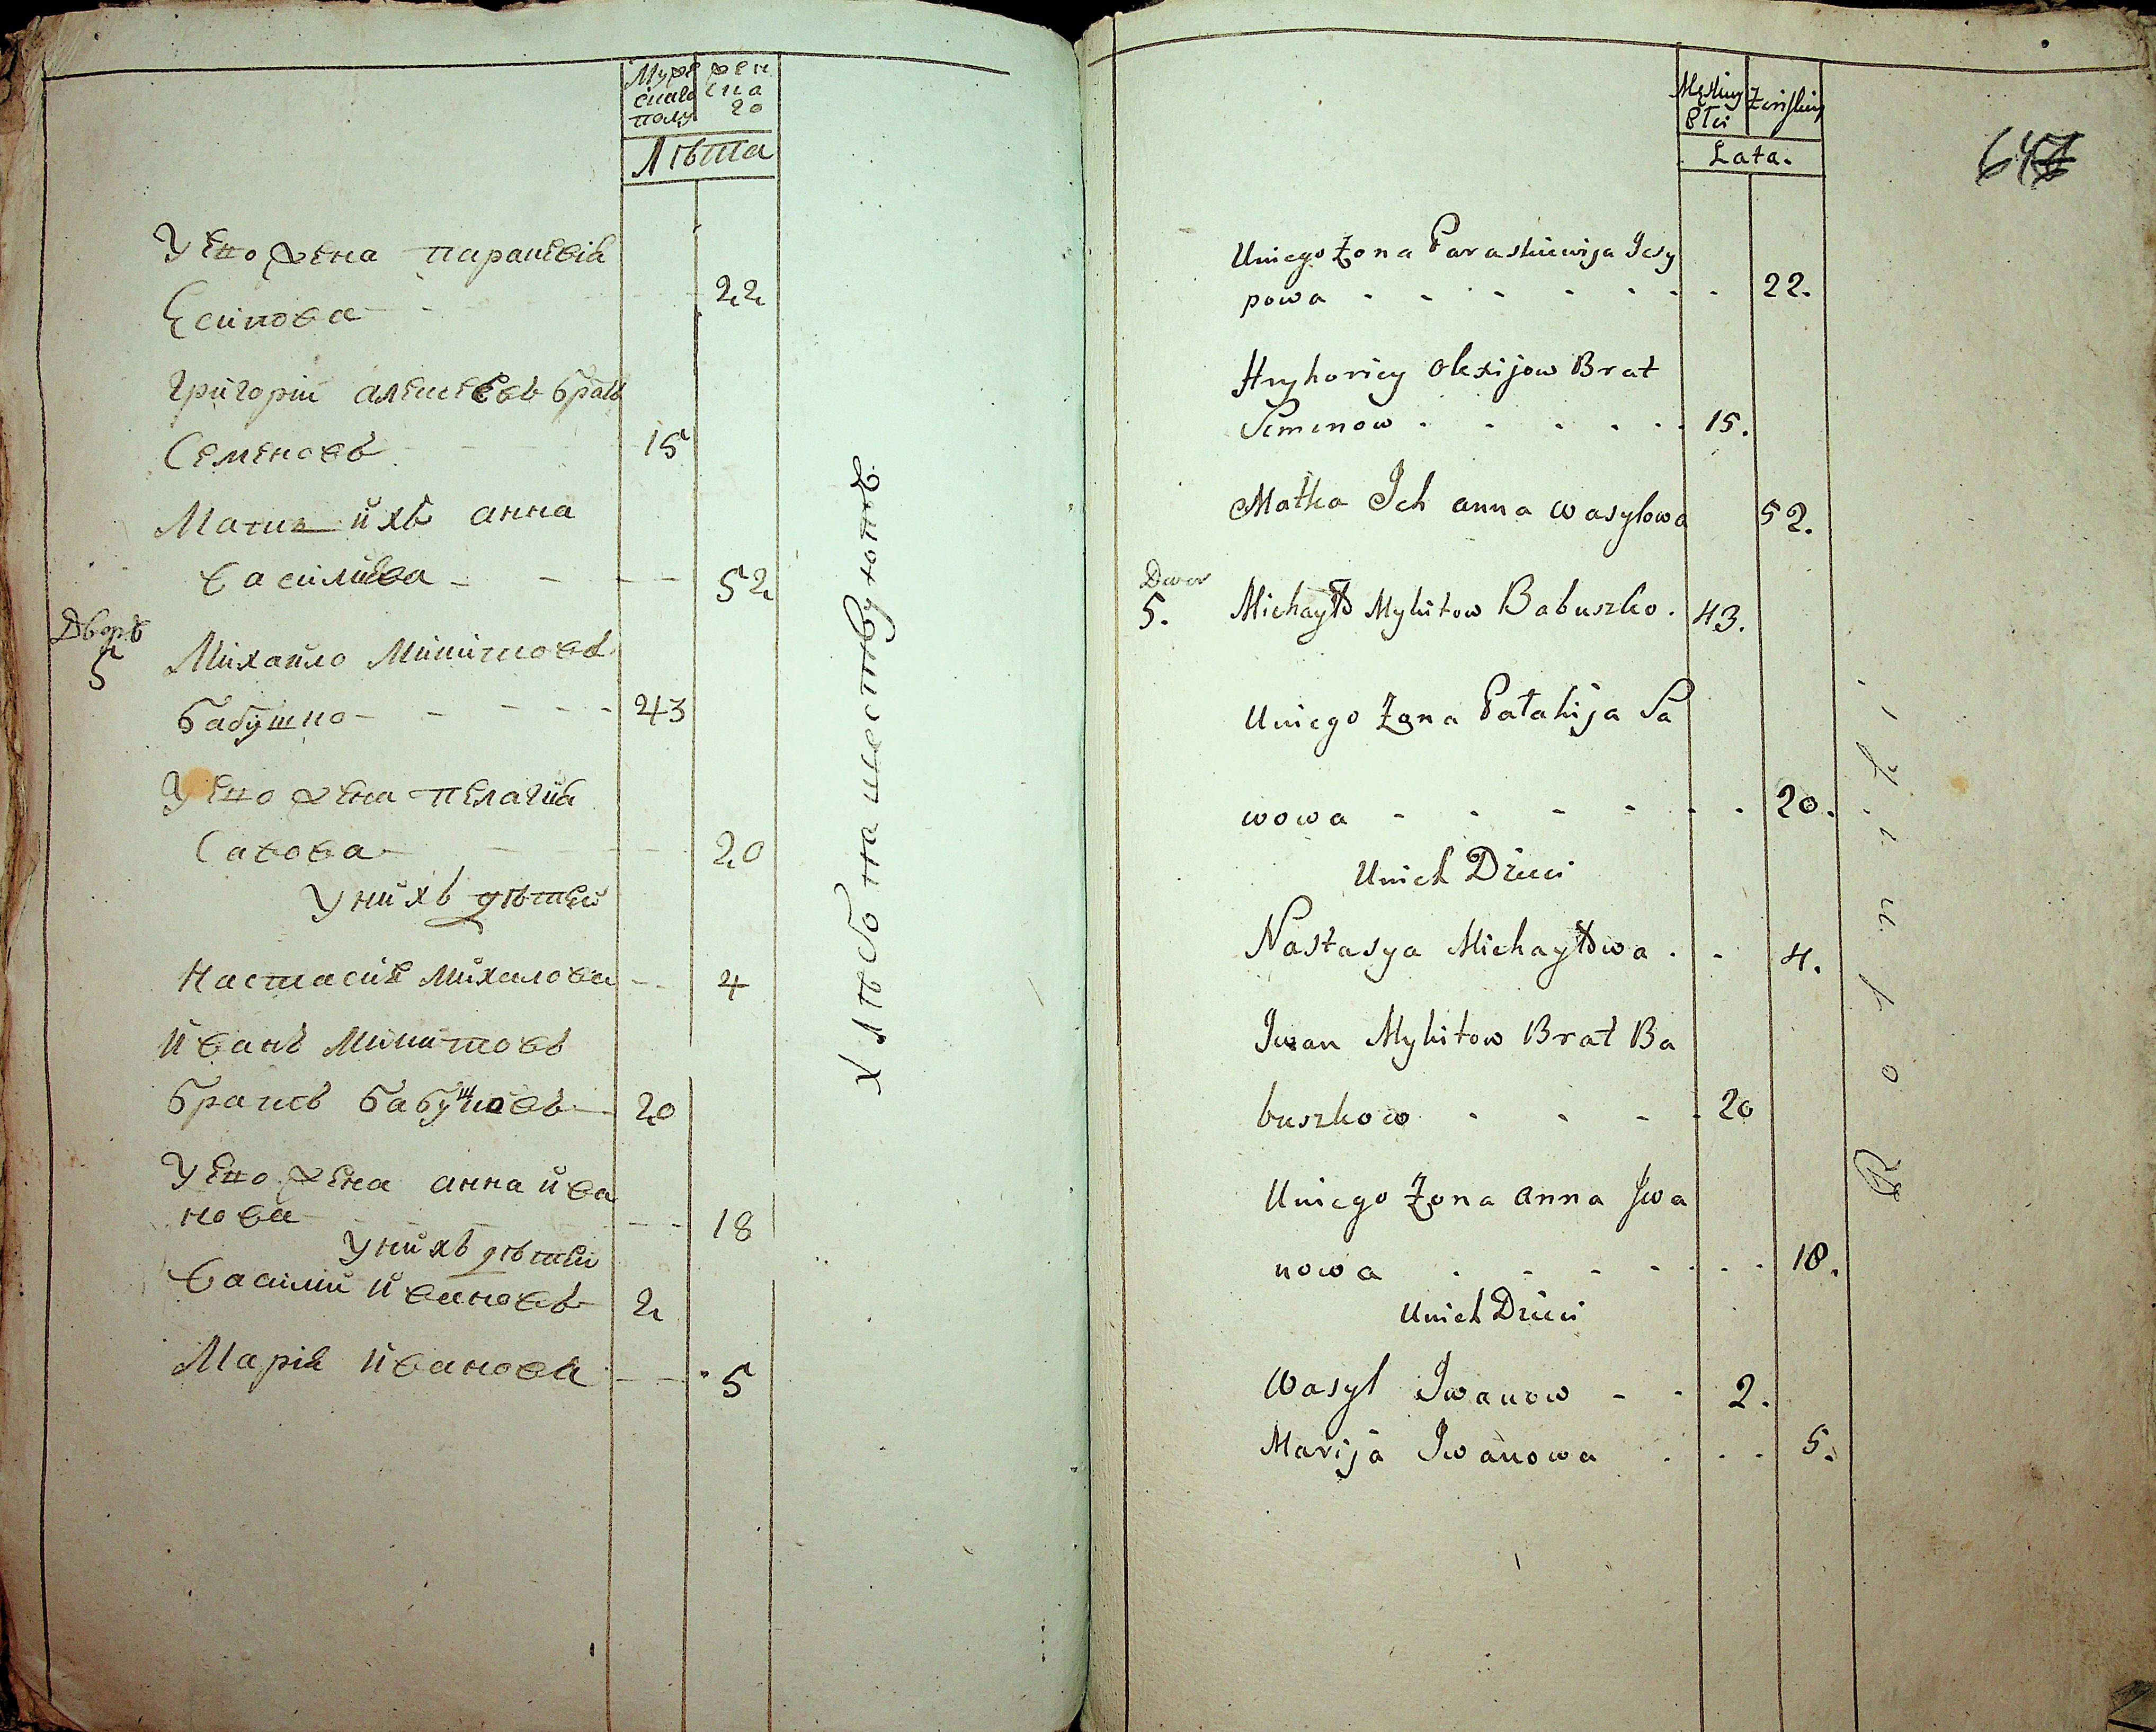 Муже жен
скаго ска
полу го
Лѣта
У его жена параскевія
Есипова 22
Григорій алексѣевъ братъ
Семеновъ 15
Матка ихъ анна
василиева 52
Дворъ
5 Михайло Микитовъ
бабушко 43
У его жена пелагия
Савова 20
У нихъ дѣтей
Настасия Михалова 4
Иванъ Микитовъ
братъ бабушковъ 20
У его жена анна ива
нова 18
У нихъ дѣтей
василий Ивановъ 2
Марія Иванова 5
Хлѣбопашествуютъ
647
Męskiey Żeńskiey
Płci
Lata.
Uniego Żona Paraskiewija Jesy
powa 22.
Hryhoriey Olexijow Brat
Semenow 15.
Matka Ich anna wasylowa 52.
Dwor
5. Michayło Mykitow Babuszko. 43.
Uniego Żona Pałahija Sa
wowa 20.
Unich Dzieci
Nastasya Michayłowa 4.
Iwan Mykitow Brat Ba
buszkow 20
Uniego Żona anna Iwa
nowa 18.
Unich Dzieci
Wasyl Iwanow 2.
Marija Iwanowa 5.